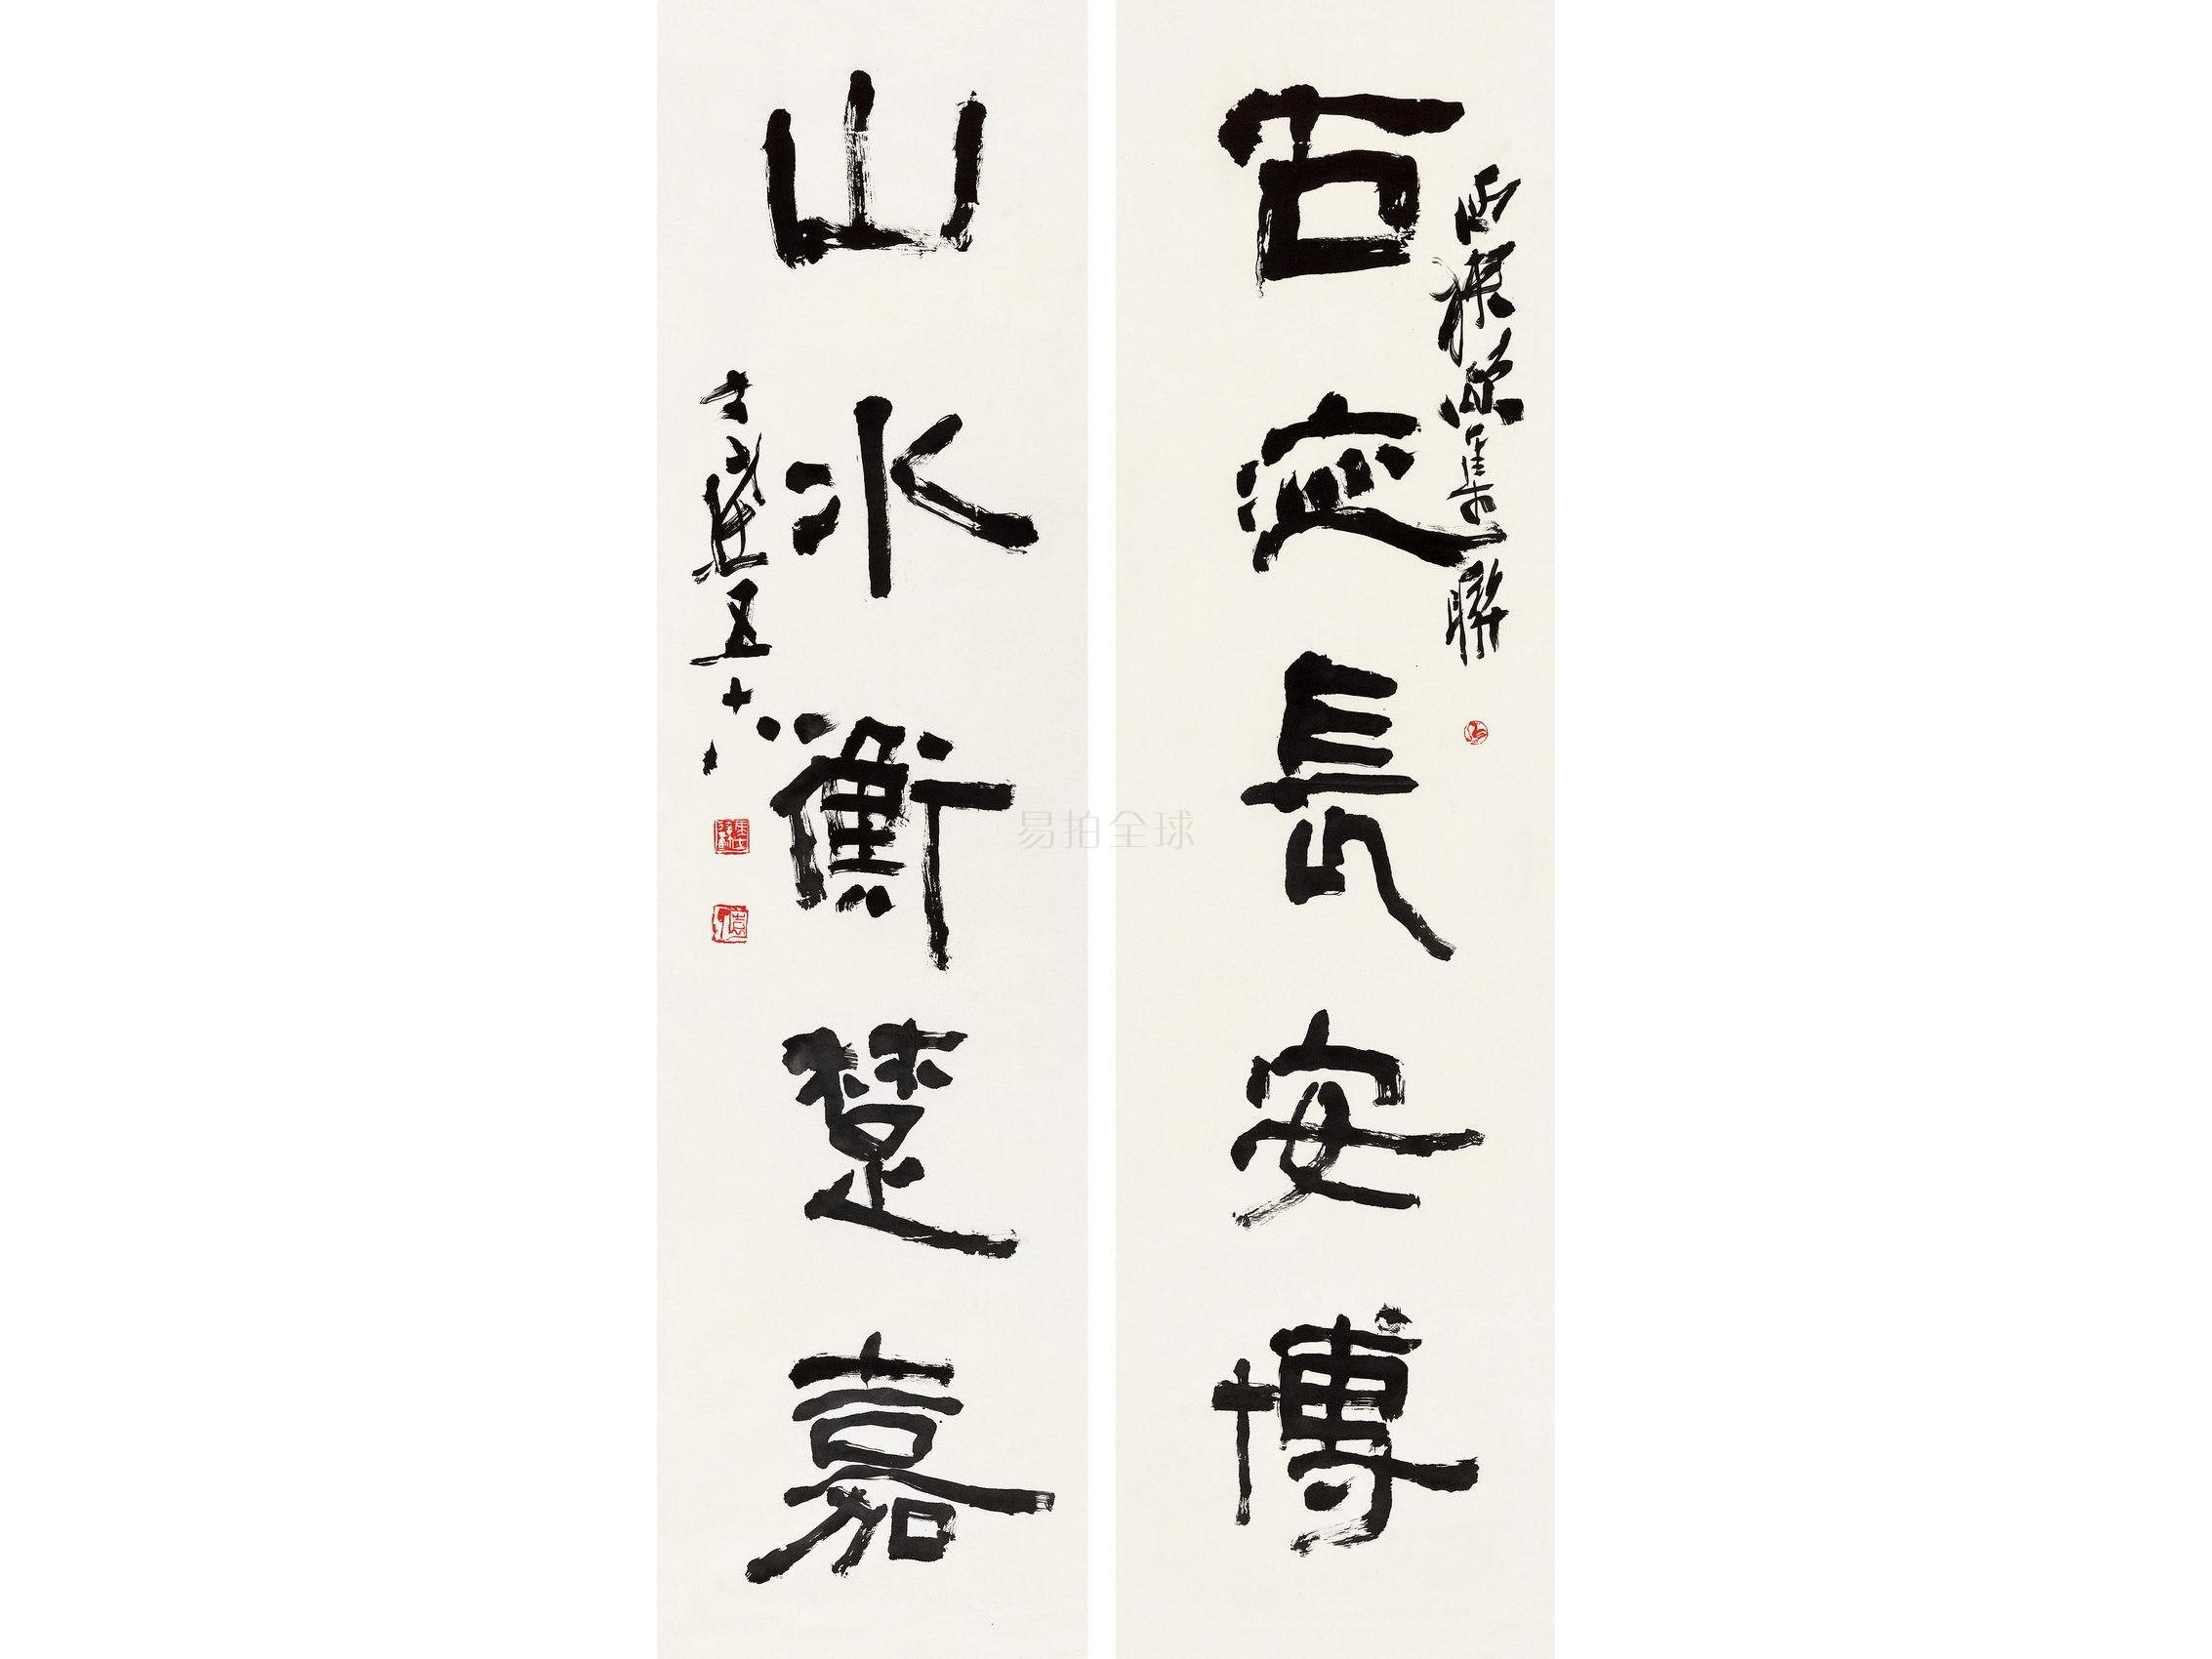 西狹頌集聯
古迹長安博
山水衡楚嘉
士達五十八
易拍全球